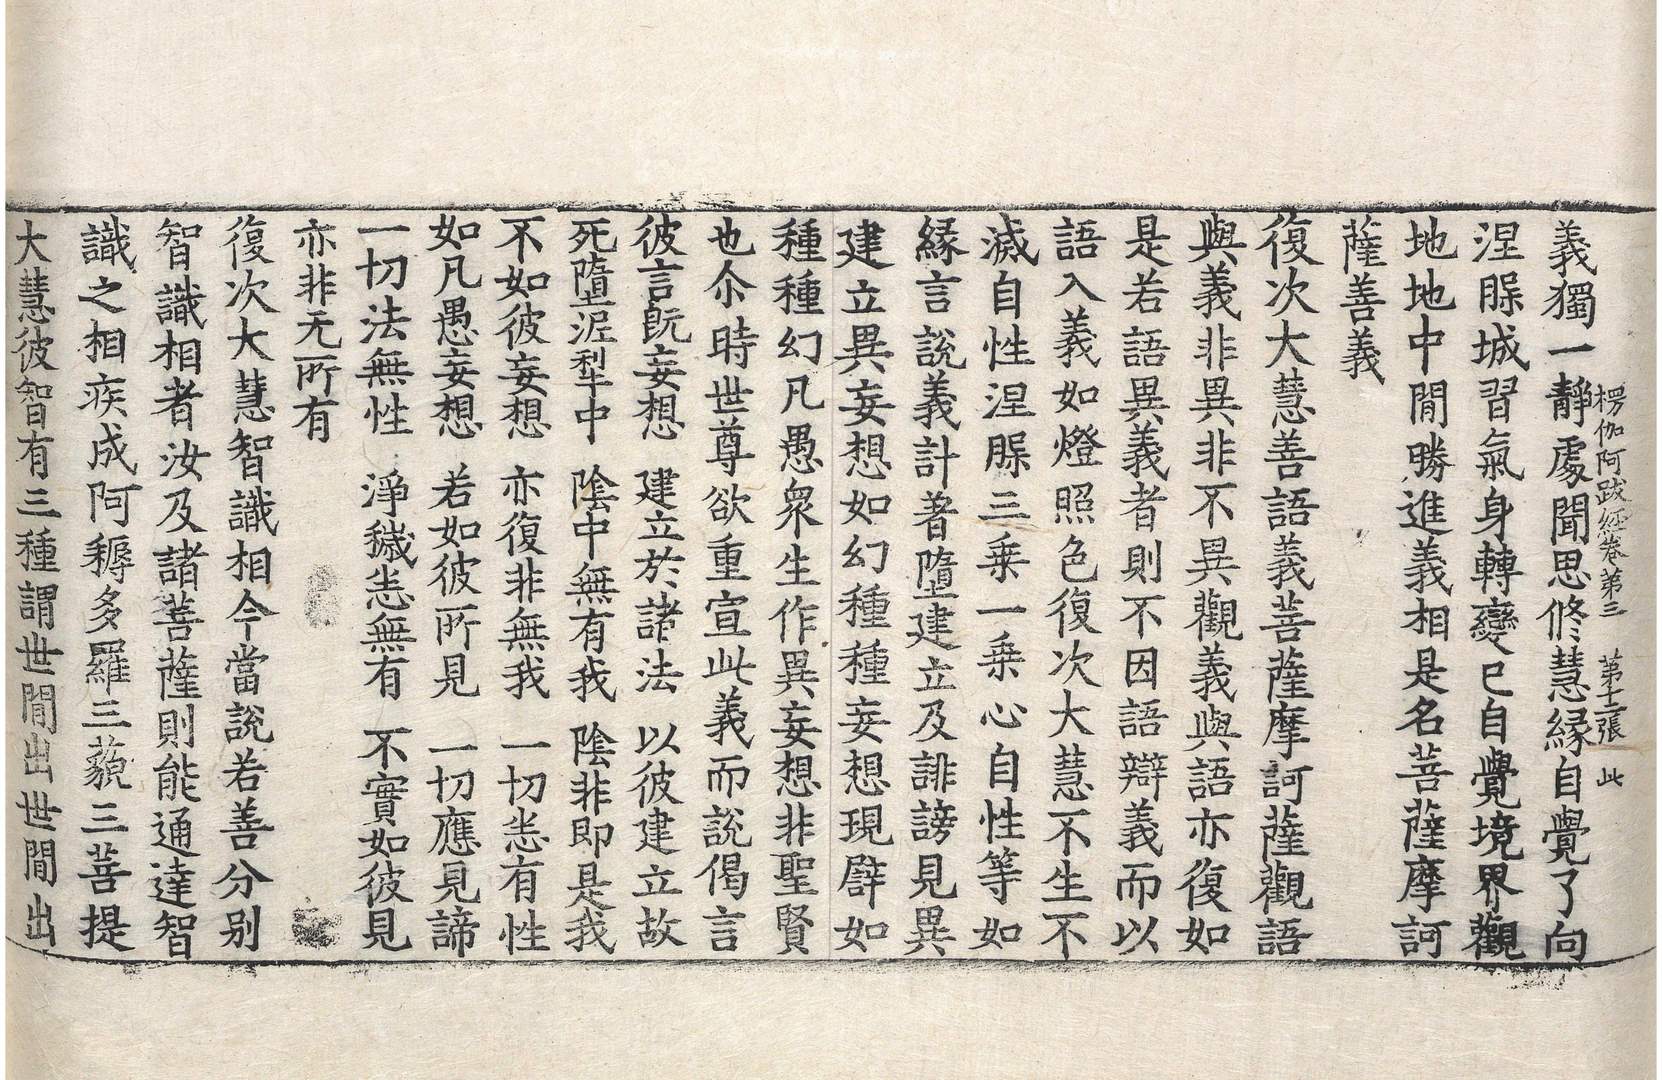 楞伽阿跋經卷第三　第十二張　此
義獨一靜處聞思修慧緣自覺了向
涅槃城習氣身轉變已自覺境界觀
地地中間勝進義相是名菩薩摩訶
薩善義
復次大慧善語義菩薩摩訶薩觀語
與義非異非不異觀義與語亦復如
是若語異義者則不因語辯義而以
語入義如燈照色復次大慧不生不
滅自性涅槃三乘一乘心自性等如
緣言說義計著墮建立及誹謗見異
建立異妄想如幻種種妄想現譬如
種種幻凡愚眾生作異妄想非聖賢
也尒時世尊欲重宣此義而說偈言
彼言既妄想　建立於諸法　以彼建立故
死墮泥犁中　陰中無有我　陰非即是我
不如彼妄想　亦復非無我　一切悉有性
如凡愚妄想　若如彼所見　一切應見諦
一切法無性　淨穢悉無有　不實如彼見
亦非无所有
復次大慧智識相今當說若善分別
智識相者汝及諸菩薩則能通達智
識之相疾成阿耨多羅三藐三菩提
大慧彼智有三種謂世間出世間出